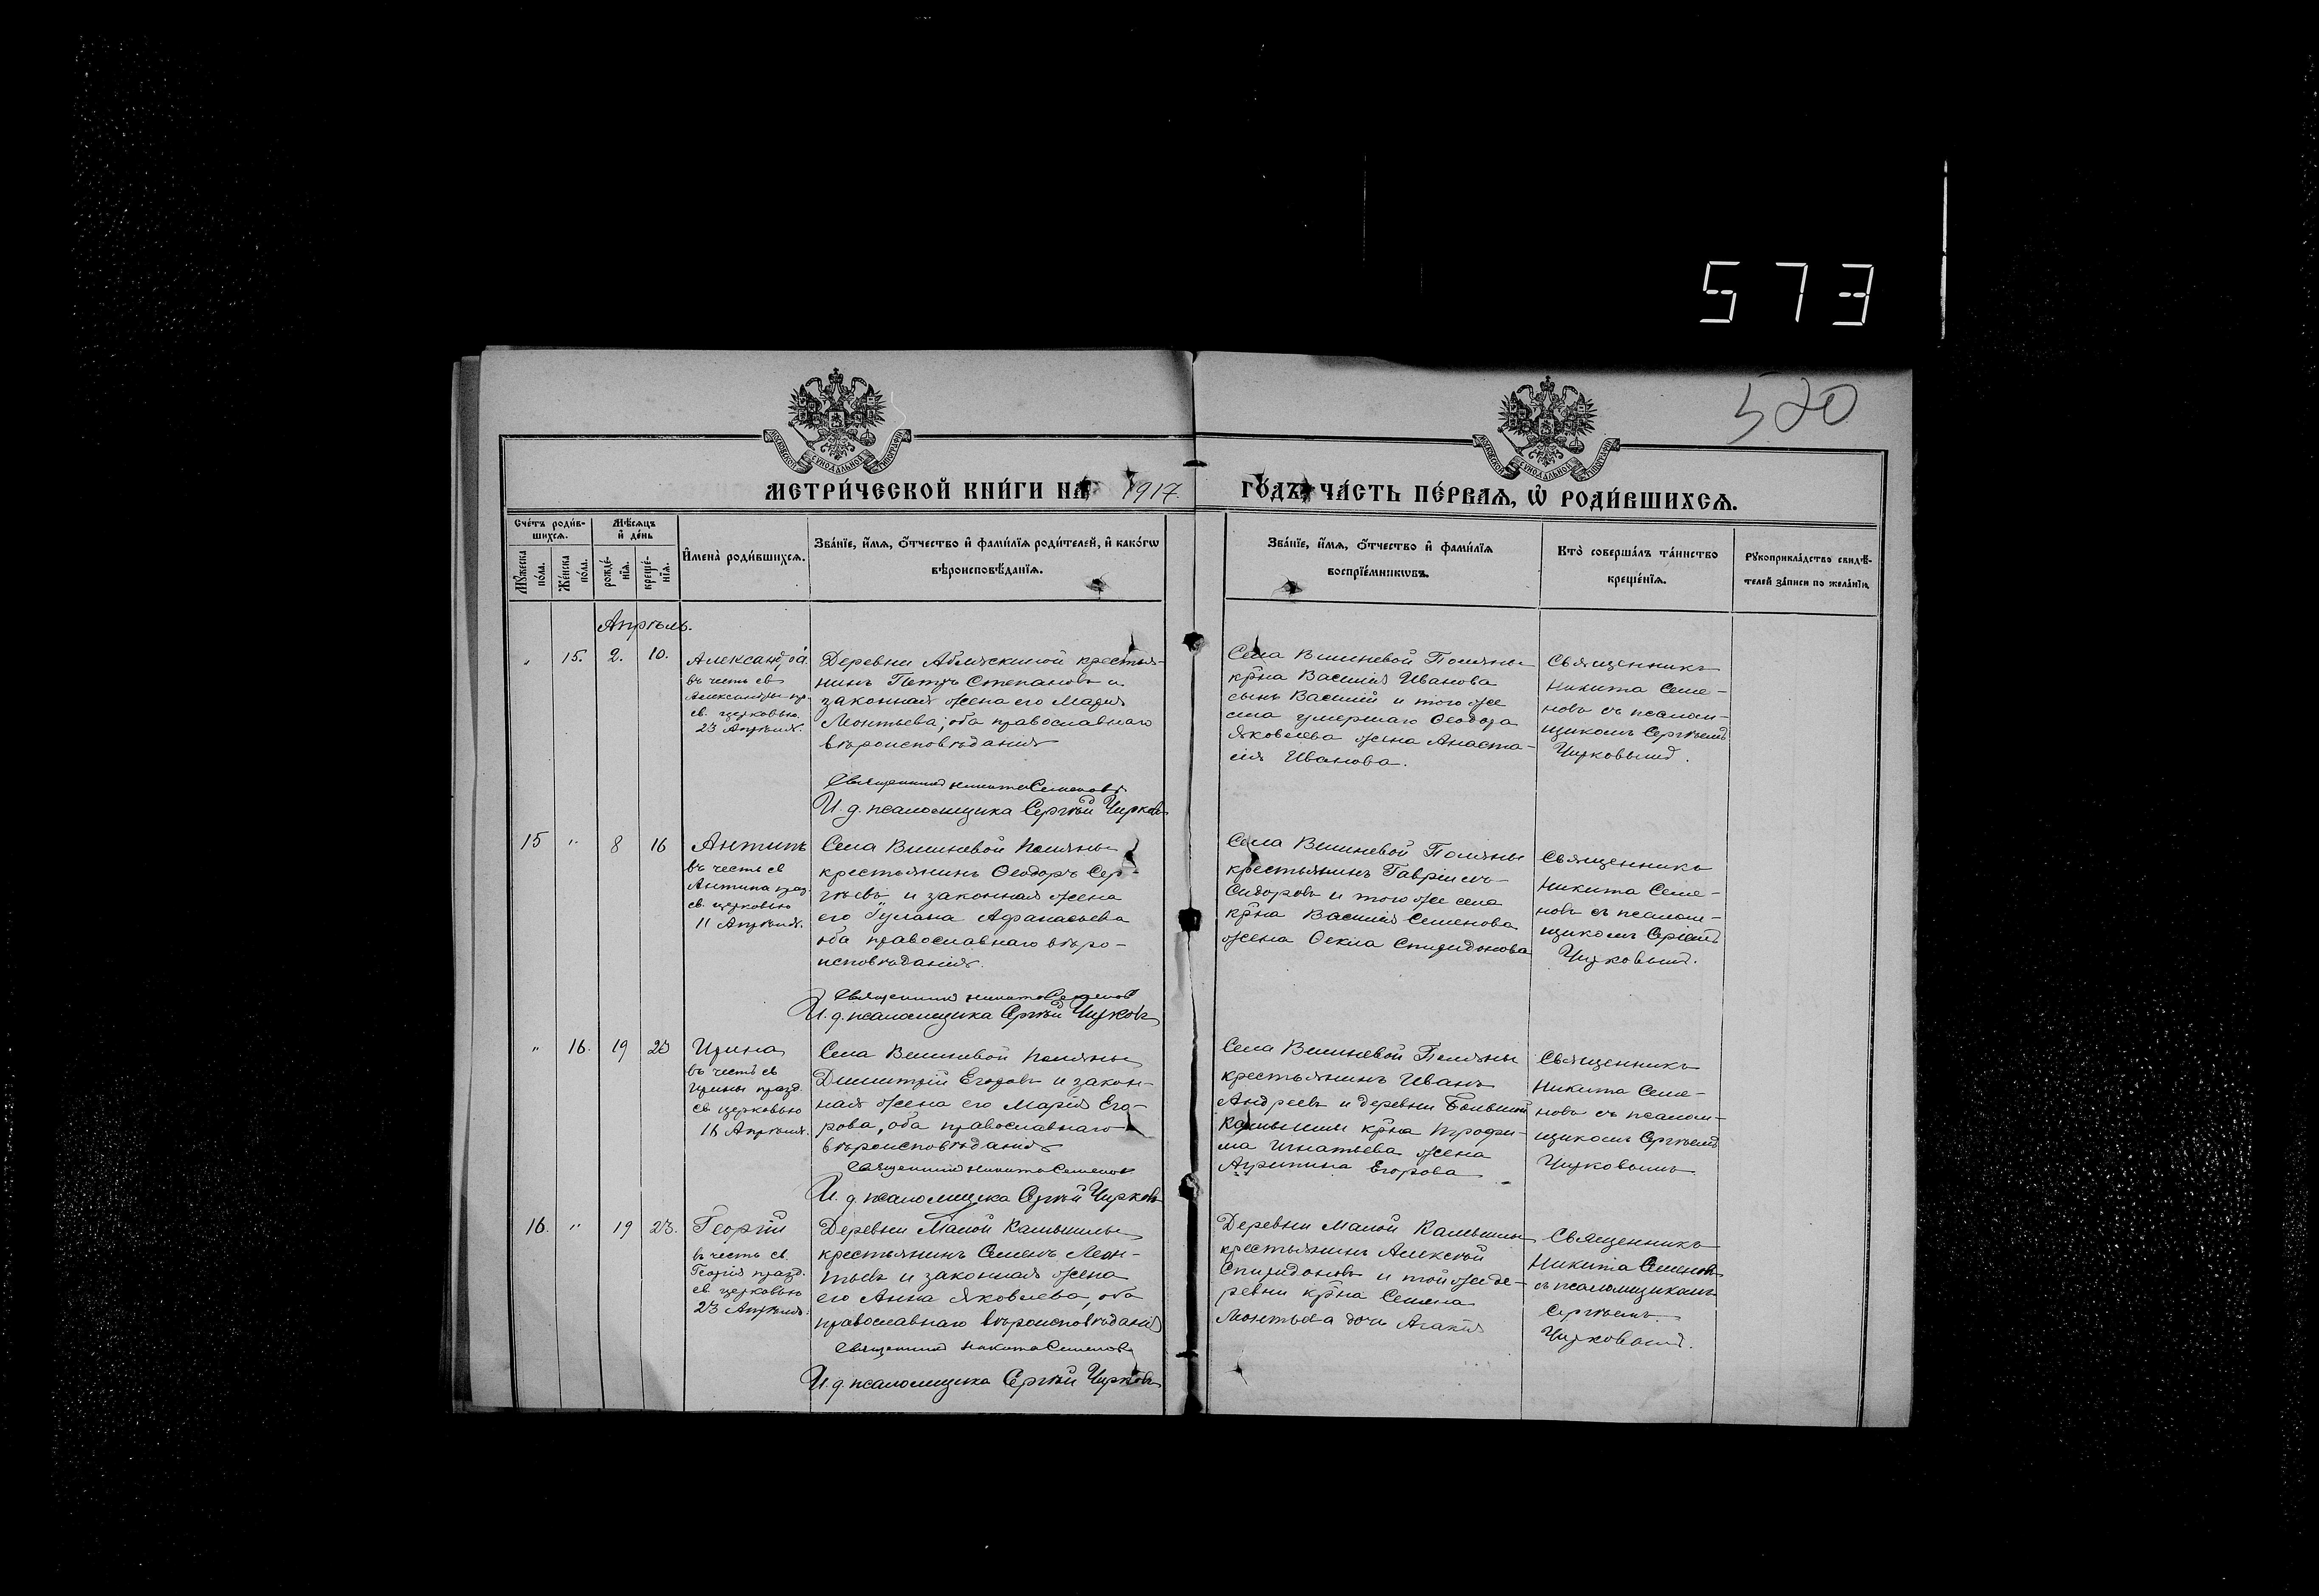 573
520
МОСКОВСКОЙ СУНОДАЛЬНОЙ ТИПОГРАФІИ
МОСКОВСКОЙ СУНОДАЛЬНОЙ ТИПОГРАФІИ
МЕТРИ́ЧЕСКОЙ КНИ́ГИ НА 1917 ГО́ДЪ ЧА́СТЬ ПЕ́РВАѦ, Ѡ҆ РОДИ́ВШИХСѦ.
Сче́тъ роди́в-
шихсѧ.
Мꙋ́жеска по́ла.
Же́нска по́ла.
Мѣ́сѧцъ
и҆ де́нь
рожде́-
нїѧ.
креще́-
нїѧ.
И҆мена̀ роди́вшихсѧ.
Зва́нїе, и҆́мѧ, ѻ҆́тчество и҆ фами́лїѧ роди́телей, и҆ како́гѡ
вѣроисповѣ́данїѧ.
Зва́нїе, и҆́мѧ, ѻ҆́тчество и҆ фами́лїѧ
воспрїе́мникѡвъ.
Кто̀ соверша́лъ та́инство
креще́нїѧ.
Рꙋкоприкла́дство свидѣ́-
телей за́писи по жела́нїю.
Апрѣль.
" 15. 2. 10.
Александра
въ честь св
Александры пр.
св. церковью
23 Апрѣля.
Деревни Аблязкиной крестья-
нинъ Петръ Степановъ и
законная жена его Марія
Леонтьева, оба православнаго
вѣроисповѣданія
Священникъ Никита Семеновъ
И. д. псаломщика Сергѣй Чирковъ
Села Вишневой Поляны
кр-на Василія Иванова
сынъ Василій и того же
села умершаго Ѳеодора
Яковлева жена Анаста-
сія Иванова.
Священникъ
Никита Семе-
новъ съ псалом-
щикомъ Сергѣемъ
Чирковымъ.
15 " 8 16
Антипъ
въ честь св
Антипа празд.
св. церковью
11 Апрѣля.
Села Вишневой Поляны
крестьянинъ Ѳеодоръ Сер-
гѣевъ и законная жена
его Іуліана Аѳанасьева
оба православнаго вѣро-
исповѣданія.
Священникъ Никита Семеновъ
И. д. псаломщика Сергѣй Чирковъ
Села Вишневой Поляны
крестьянинъ Гавріилъ
Сидоровъ и того же села
кр-на Василія Семенова
жена Ѳекла Спиридонова
Священникъ
Никита Семе-
новъ съ псалом-
щикомъ Сергѣемъ
Чирковымъ.
" 16. 19 23
Ирина
въ честь св
Ирины празд.
св церковью
16 Апрѣля.
Села Вишневой Поляны
Димитрій Егоровъ и закон-
ная жена его Марія Его-
рова, оба православнаго
вѣроисповѣданія
Священникъ Никита Семеновъ
И. д. псаломщика Сергѣй Чирковъ
Села Вишневой Поляны
крестьянинъ Иванъ
Андреевъ и деревни Большой
Камышлы кр-на Трофи-
ма Игнатьева жена
Агрипина Егорова
Священникъ
Никита Семе-
новъ съ псалом-
щикомъ Сергѣемъ
Чирковымъ
16. " 19 23.
Георгій
въ честь св.
Георгія празд.
св. церковью
23 Апрѣля.
Деревни Малой Камышлы
крестьянинъ Семенъ Леон-
тьевъ и законная жена
его Анна Яковлева, оба
православнаго вѣроисповѣданія
Священникъ Никита Семеновъ
И. д. псаломщика Сергѣй Чирковъ
Деревни Малой Камышлы
крестьянинъ Алексѣй
Спиридоновъ и той же де-
ревни кр-на Семена
Леонтьева дочь Агаѳія
Священникъ
Никита Семеновъ
съ псаломщикомъ
Сергѣемъ
Чирковымъ.